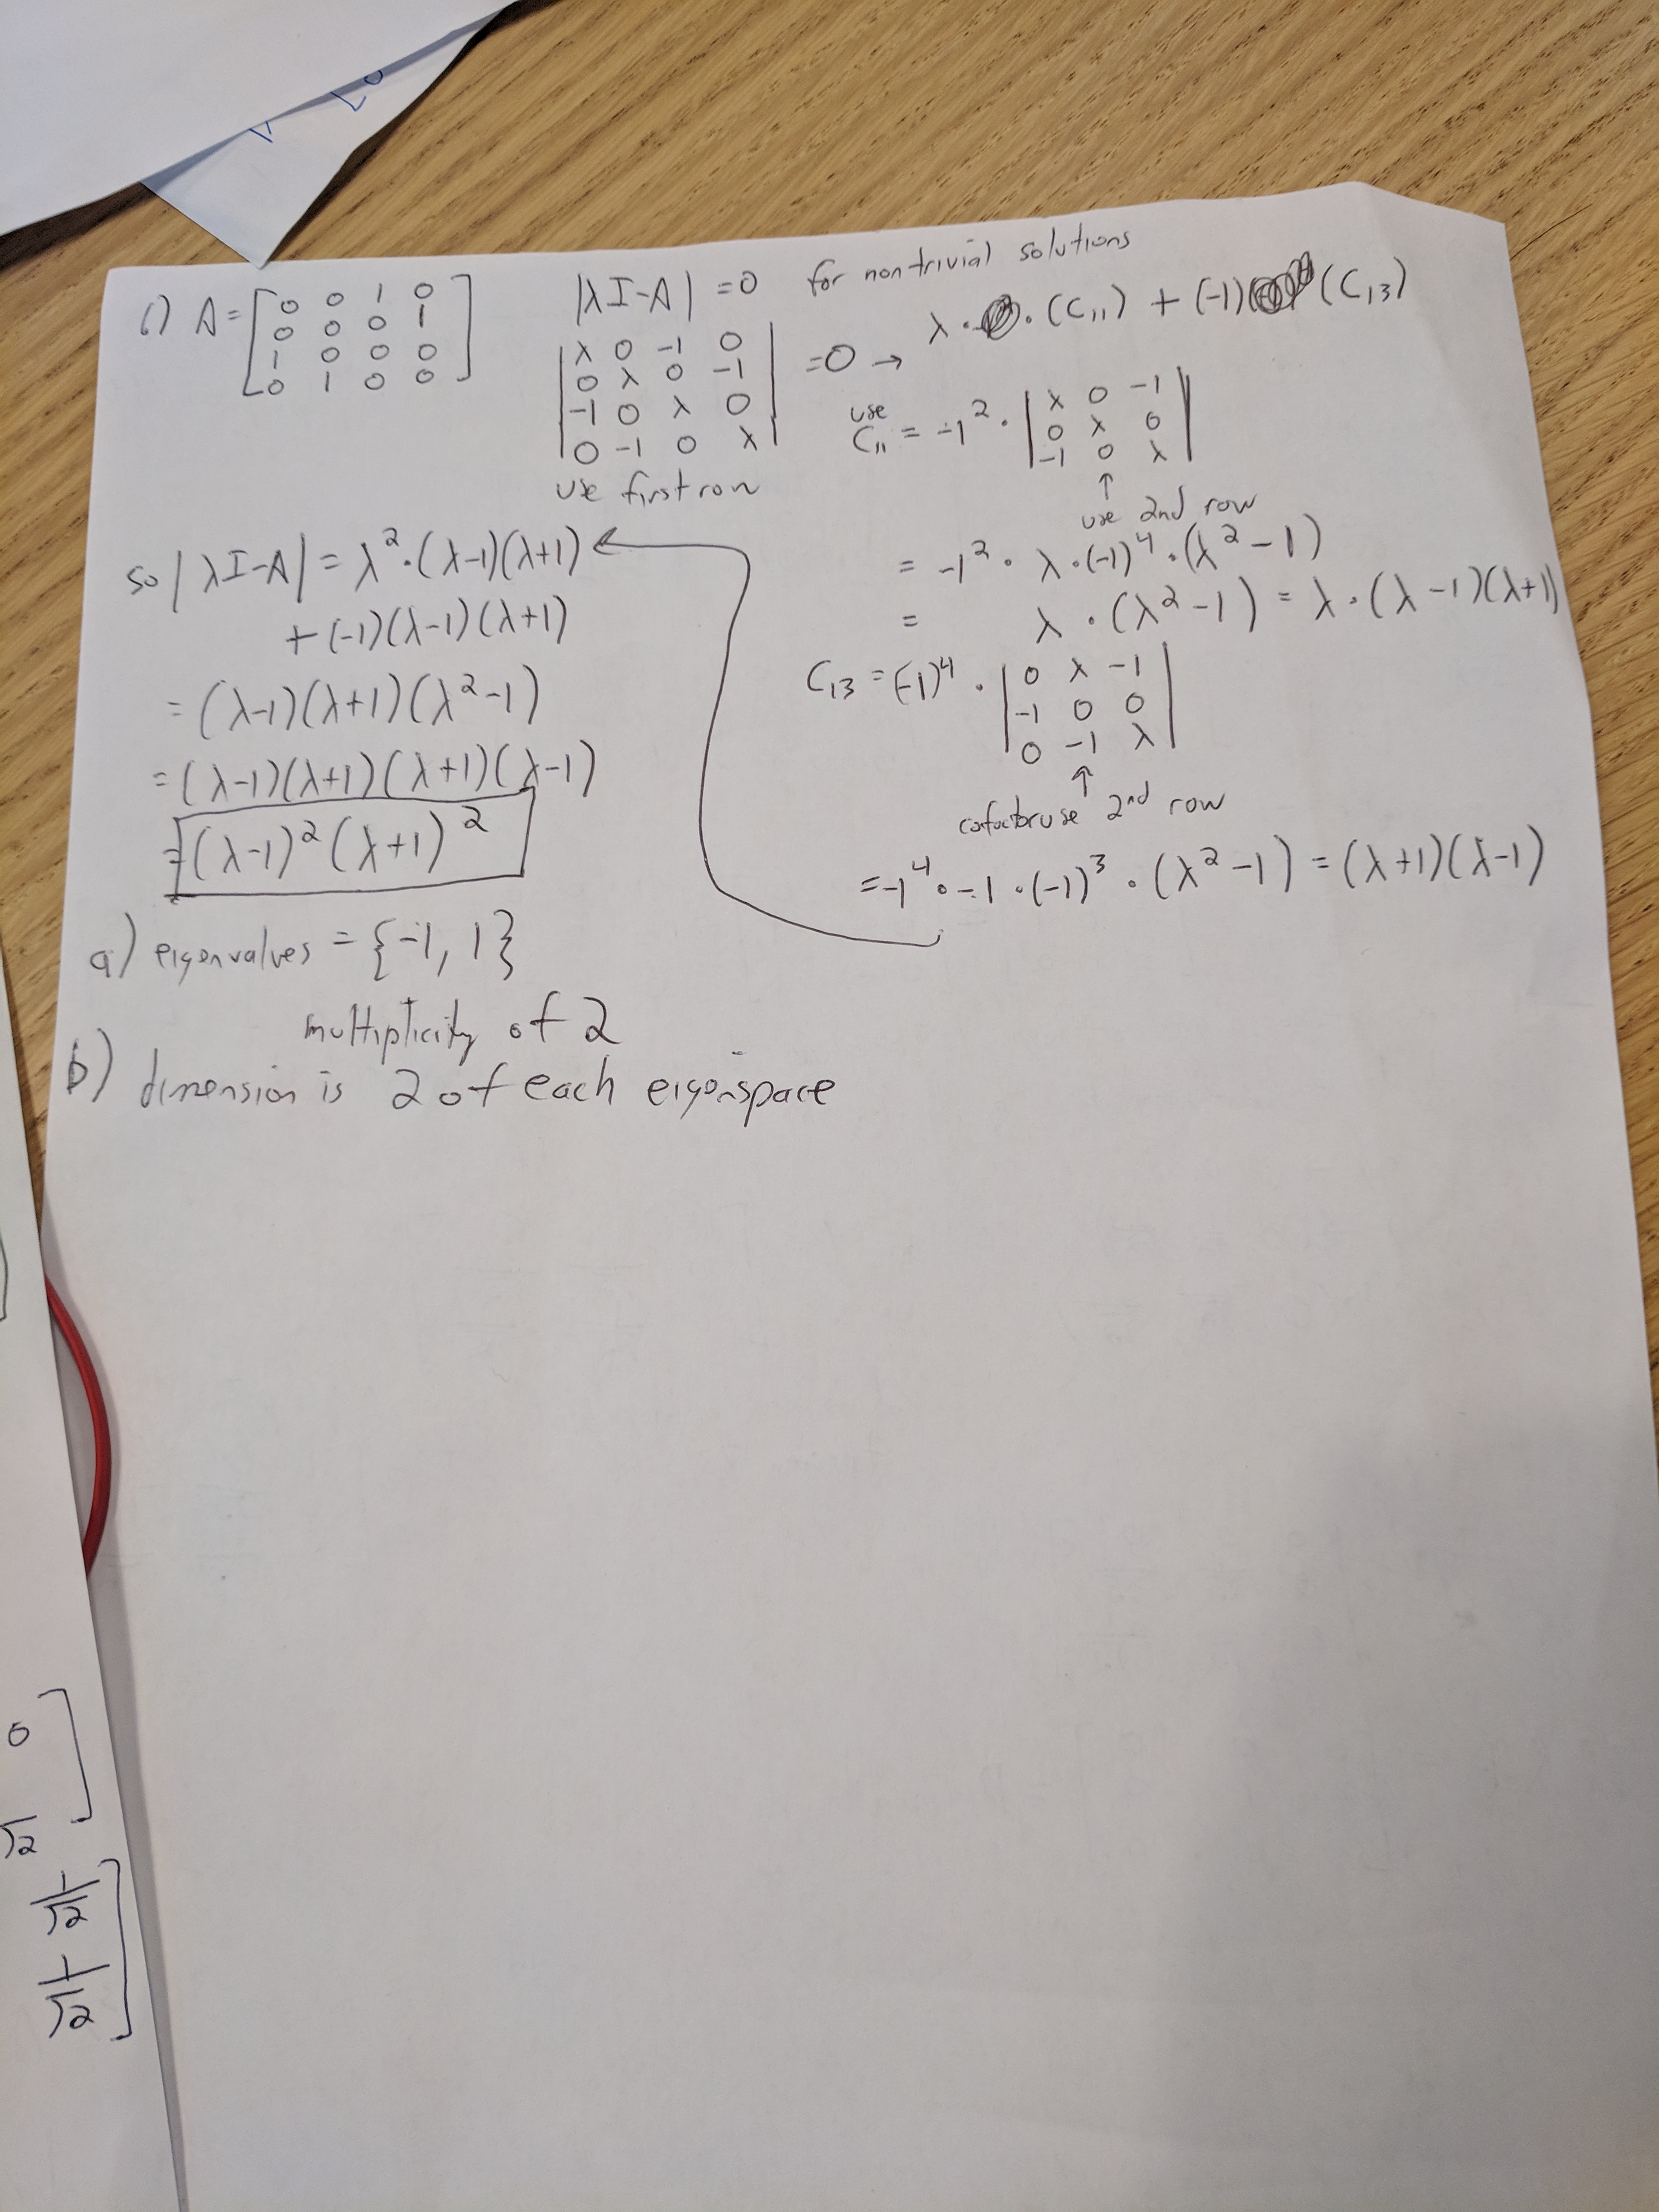 L0
1) A = [0 0 1 0
0 0 0 1
1 0 0 0
0 1 0 0]
|λI-A| = 0 for nontrivial solutions
|λ 0 -1 0|
|0 λ 0 -1|
|-1 0 λ 0|
|0 -1 0 λ|
=0 → λ · · (C₁₁) + (-1) (C₁₃)
use first row
use
C₁₁ = -1² · |λ 0 -1|
|0 λ 0|
|-1 0 λ|
↑
use 2nd row
= -1² · λ · (-1)⁴ · (λ² - 1)
= λ · (λ² - 1) = λ · (λ - 1)(λ+1)
C₁₃ = (-1)⁴ · |0 λ -1|
|-1 0 0|
|0 -1 λ|
↑
use 2nd row
= -1⁴ · -1 · (-1)³ · (λ² - 1) = (λ+1)(λ-1)
so |λI-A| = λ² · (λ-1)(λ+1)
+ (-1)(λ-1)(λ+1)
= (λ-1)(λ+1)(λ²-1)
= (λ-1)(λ+1)(λ+1)(λ-1)
= (λ-1)²(λ+1)²
a) eigenvalves = {-1, 1}
multiplicity of 2
b) dimension is 2 of each eigenspace
0
√2
1/√2
1/√2